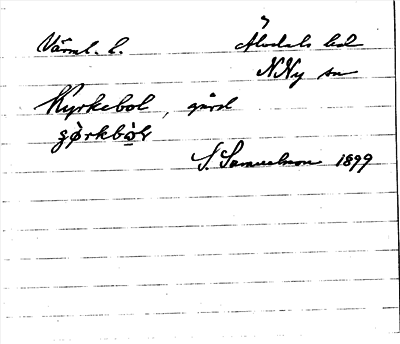 Värml. l. Älvdals hd
N Ny sn
Kyrkebol, gård
S. Samuelsson 1899